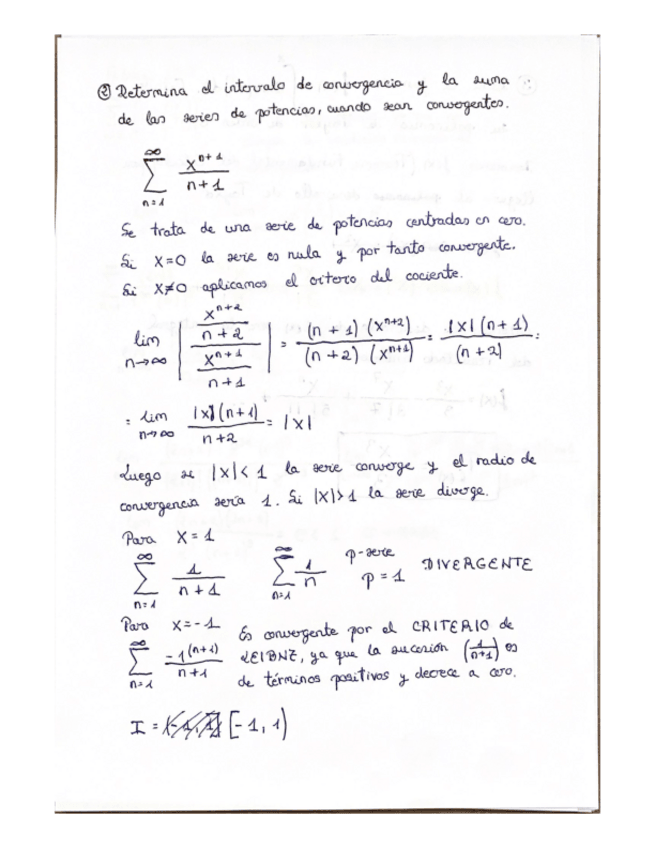 ② Determina el intervalo de convergencia y la suma
de las series de potencias, cuando sean convergentes.
∞
∑ x^(n+1) / n+1
n=1
Se trata de una serie de potencias centradas en cero.
Si x=0 la serie es nula y por tanto convergente.
Si x≠0 aplicamos el criterio del cociente.
lim n→∞ | (x^(n+2) / n+2) / (x^(n+1) / n+1) | = (n+1)(x^(n+2)) / (n+2)(x^(n+1)) = |x|(n+1) / (n+2) =
= lim n→∞ |x|(n+1) / n+2 = |x|
Luego si |x|<1 la serie converge y el radio de
convergencia sería 1. Si |x|>1 la serie diverge.
Para x=1
∞ ∑ n=1 1 / n+1   ∞ ∑ n=1 1 / n   p-serie p=1   DIVERGENTE
Para x=-1 Es convergente por el CRITERIO de
∞ ∑ n=1 -1^(n+1) / n+1 LEIBNZ, ya que la sucesión (1 / n+1) es
de términos positivos y decrece a cero.
I = [-1, 1)